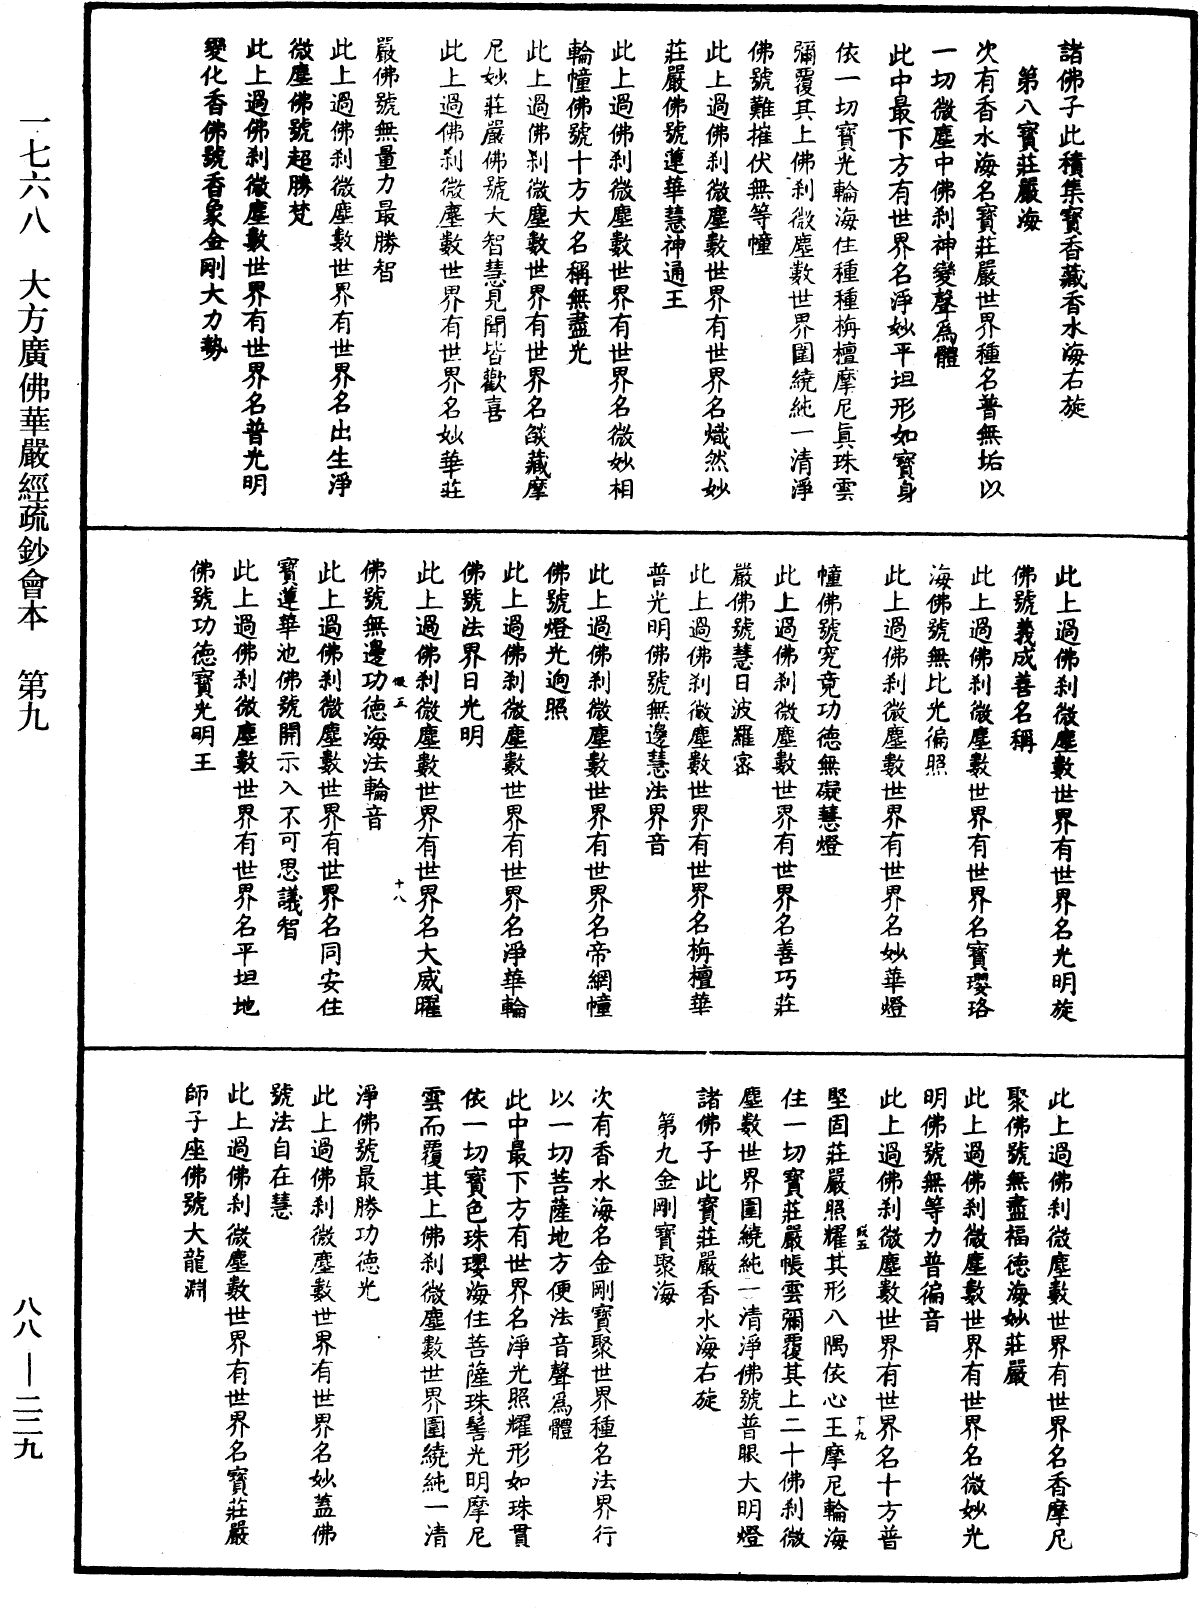 諸佛子此積集寶香藏香水海右旋
第八寶莊嚴海
次有香水海名寶莊嚴世界種名普無垢以
一切微塵中佛刹神變聲爲體
此中最下方有世界名淨妙平坦形如寶身
依一切寶光輪海住種種栴檀摩尼眞珠雲
彌覆其上佛刹微塵數世界圍繞純一清淨
佛號難摧伏無等幢
此上過佛刹微塵數世界有世界名熾然妙
莊嚴佛號蓮華慧神通王
此上過佛刹微塵數世界有世界名微妙相
輪幢佛號十方大名稱無盡光
此上過佛刹微塵數世界有世界名燄藏摩
尼妙莊嚴佛號大智慧見聞皆歡喜
此上過佛刹微塵數世界有世界名妙華莊
嚴佛號無量力最勝智
此上過佛刹微塵數世界有世界名出生淨
微塵佛號超勝梵
此上過佛刹微塵數世界有世界名普光明
變化香佛號香象金剛大力勢
此上過佛刹微塵數世界有世界名光明旋
佛號義成善名稱
此上過佛刹微塵數世界有世界名寶瓔珞
海佛號無比光徧照
此上過佛刹微塵數世界有世界名妙華燈
幢佛號究竟功德無礙慧燈
此上過佛刹微塵數世界有世界名善巧莊
嚴佛號慧日波羅宻
此上過佛刹微塵數世界有世界名栴檀華
普光明佛號無邊慧法界音
此上過佛刹微塵數世界有世界名帝網幢
佛號燈光逈照
此上過佛刹微塵數世界有世界名淨華輪
佛號法界日光明
此上過佛刹微塵數世界有世界名大威曜
佛號無邊功德海法輪音
此上過佛刹微塵數世界有世界名同安住
寶蓮華池佛號開示入不可思議智
此上過佛刹微塵數世界有世界名平坦地
佛號功德寶光明王
此上過佛刹微塵數世界有世界名香摩尼
聚佛號無盡福德海妙莊嚴
此上過佛刹微塵數世界有世界名微妙光
明佛號無等力普徧音
此上過佛刹微塵數世界有世界名十方普
堅固莊嚴照耀其形八隅依心王摩尼輪海
住一切寶莊嚴帳雲彌覆其上二十佛刹微
塵數世界圍繞純一清淨佛號普眼大明燈
諸佛子此寶莊嚴香水海右旋
第九金剛寶聚海
次有香水海名金剛寶聚世界種名法界行
以一切菩薩地方便法音聲爲體
此中最下方有世界名淨光照耀形如珠貫
依一切寶色珠瓔海住菩薩珠髻光明摩尼
雲而覆其上佛刹微塵數世界圍繞純一清
淨佛號最勝功德光
此上過佛刹微塵數世界有世界名妙蓋佛
號法自在慧
此上過佛刹微塵數世界有世界名寶莊嚴
師子座佛號大龍淵
十八
十九
一七六八 大方廣佛華嚴經疏鈔會本 第九
八八—二三九